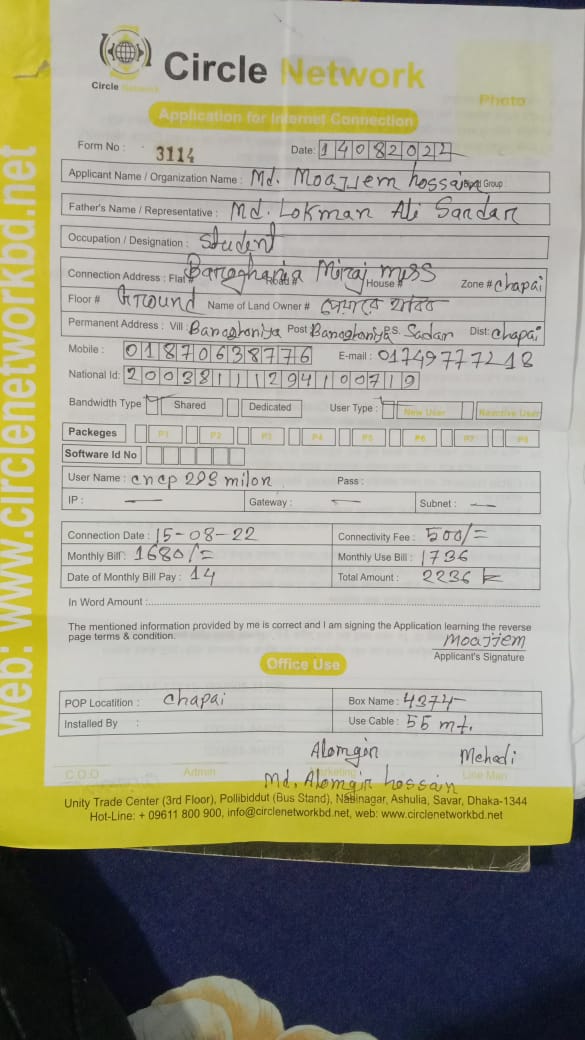 Circle Network
Circle Network
Photo
Application for Internet Connection
Form No : 3114 Date: 14082022
Applicant Name / Organization Name : Md. Moajjem hossain Group :
Father's Name / Representative : Md. Lokman Ali Sardar
Occupation / Designation : Student
Connection Address : Flat # Baroghoria Road # Miraj mess House # Zone # Chapai
Floor # Ground Name of Land Owner #
Permanent Address : Vill : Baroghoriya Post Baroghoriya P.S. Sadar Dist: Chapai
Mobile : 01870638776 E-mail : 01749777218
National Id: 20038111294100719
Bandwidth Type Shared Dedicated User Type : New User Reactive User
Packeges P1 P2 P3 P4 P5 P6 P7 P8
Software Id No
User Name : cncp 293 milon Pass :
IP : — Gateway : — Subnet : —
Connection Date : 15-08-22 Connectivity Fee : 500/=
Monthly Bill : 1680/= Monthly Use Bill : 1736
Date of Monthly Bill Pay : 14 Total Amount : 2236
In Word Amount :
The mentioned information provided by me is correct and I am signing the Application learning the reverse
page terms & condition. Moajjem
Applicant's Signature
Office Use
POP Locatition : Chapai Box Name : 4374
Installed By : Use Cable : 55 mt.
Alomgir Mehadi
C.O.O Admin Marketing Line Man
Md. Alomgir hossain
Unity Trade Center (3rd Floor), Pollibiddut (Bus Stand), Nabinagar, Ashulia, Savar, Dhaka-1344
Hot-Line: + 09611 800 900, info@circlenetworkbd.net, web: www.circlenetworkbd.net
web: www.circlenetworkbd.net